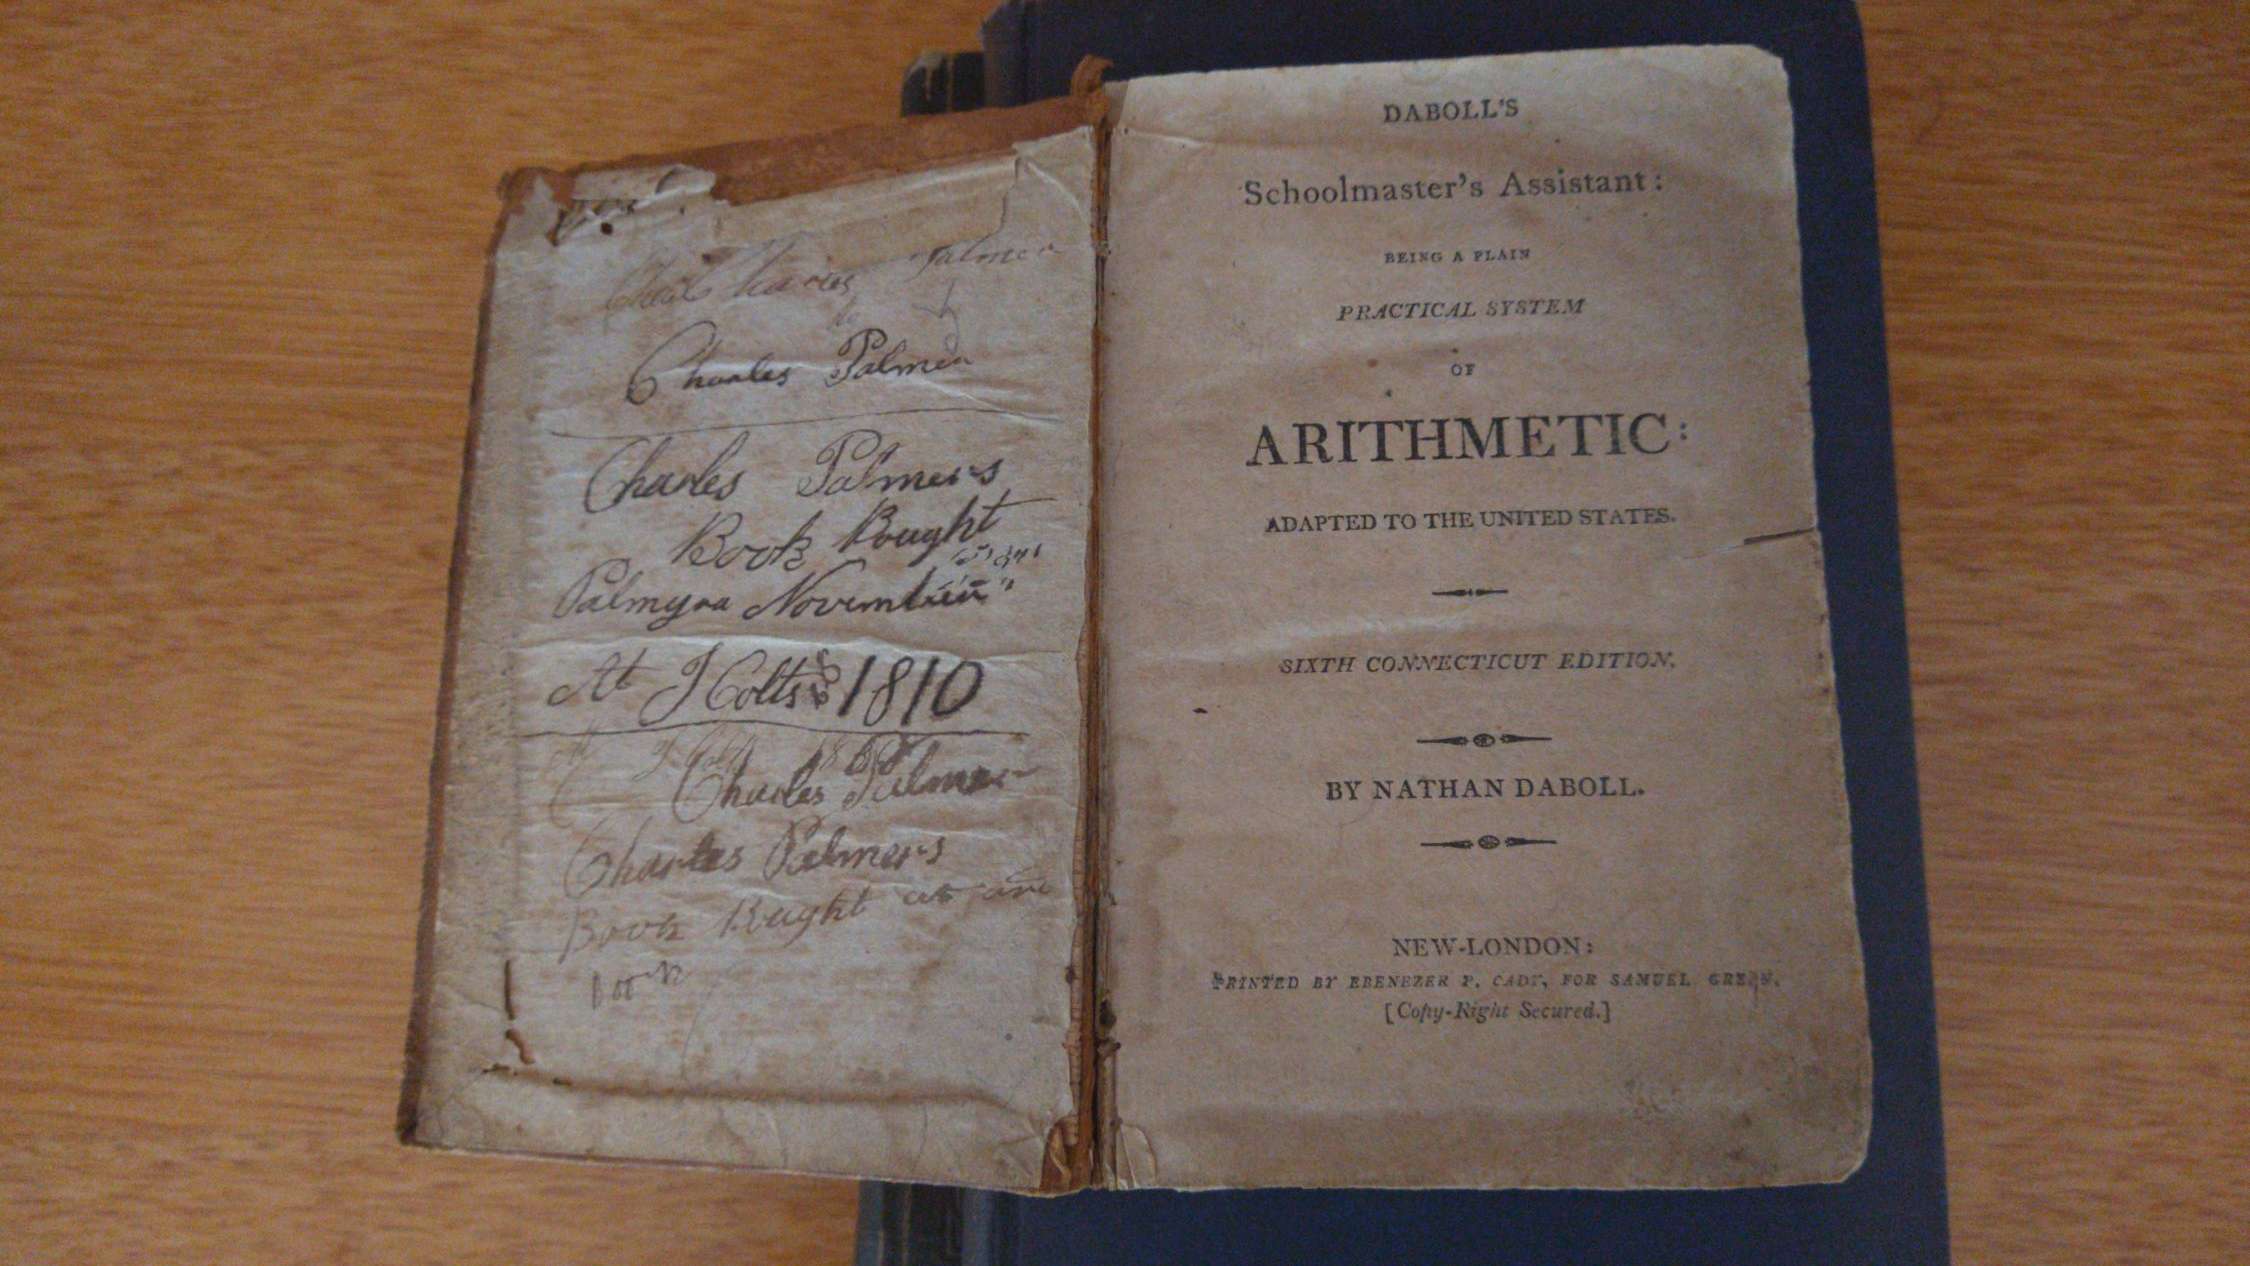 Charles Palmer
Charles Palmer
Charles Palmers
Book Bought
Palmyra November
At J Colts 1810
Charles Palmer
Charles Palmers
Book Bought at
book
DABOLL'S
Schoolmaster's Assistant:
BEING A PLAIN
PRACTICAL SYSTEM
OF
ARITHMETIC:
ADAPTED TO THE UNITED STATES.
SIXTH CONNECTICUT EDITION.
BY NATHAN DABOLL.
NEW-LONDON:
PRINTED BY EBENEZER P. CADY, FOR SAMUEL GREEN.
[Copy-Right Secured.]